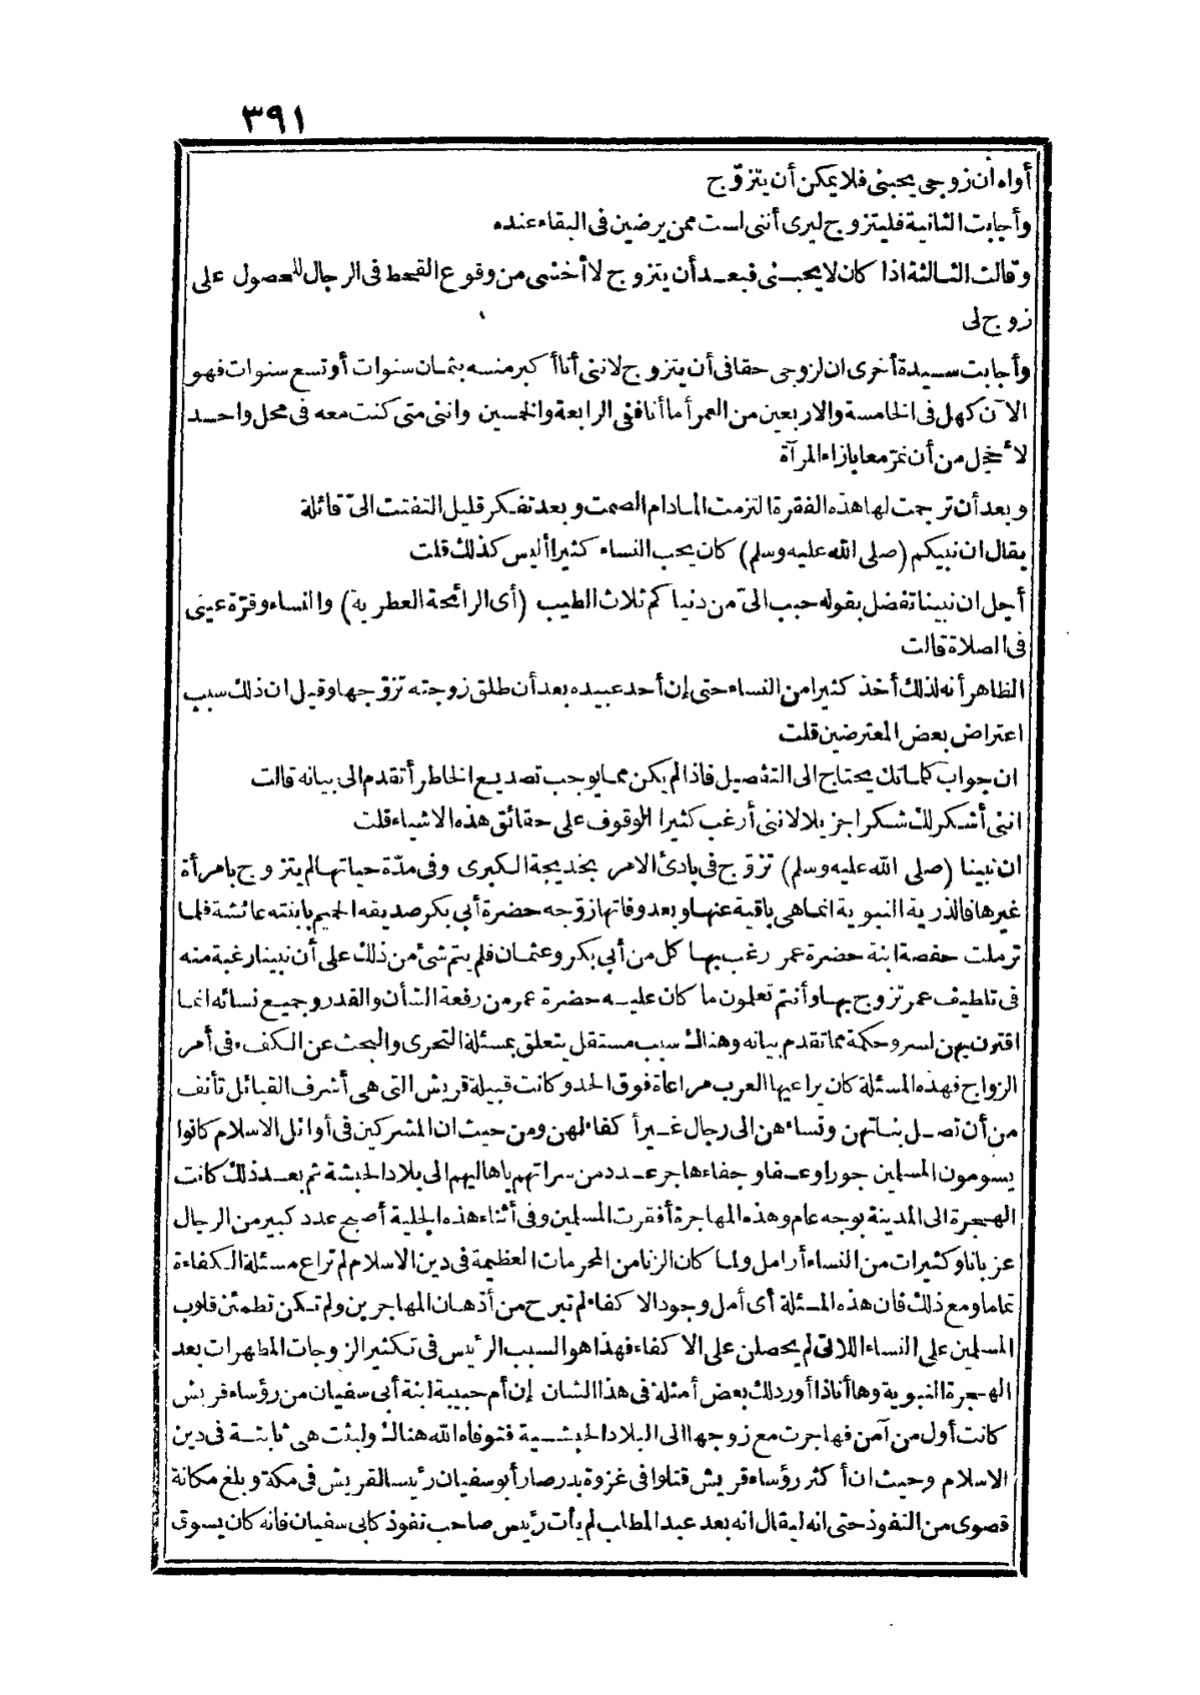 ٣٩١
أواه أن زوجي يحبني فلا يمكن أن يتزوّج
وأجابت الثانية فليتزوج ليرى أننى لست ممن يرضين فى البقاء عنده
وقالت الثالثة اذا كان لا يحبنى فبعد أن يتزوج لا أخشى من وقوع القحط فى الرجال للحصول على
زوج لى
وأجابت سيدة أخرى ان لزوجى حقا فى أن يتزوج لاننى أنا أكبر منه بثمان سنوات أو تسع سنوات فهو
الآن كهل فى الخامسة والاربعين من العمر أما أنا ففى الرابعة والخمسين واننى متى كنت معه فى محل واحد
لأخجل من أن نمرّ معا بازاء المرآة
وبعد أن ترجمت لها هذه الفقرة التزمت المادام الصمت وبعد تفكر قليل التفتت الىّ قائلة
يقال ان نبيكم (صلى الله عليه وسلم) كان يحب النساء كثيرا أليس كذلك قلت
أجل ان نبينا تفضل بقوله حبب الىّ من دنياكم ثلاث الطيب (أى الرائحة العطرية) والنساء وقرّة عينى
فى الصلاة قالت
الظاهر أنه لذلك أخذ كثيرا من النساء حتى إن أحد عبيده بعد أن طلق زوجته تزوّجها وقيل ان ذلك سبب
اعتراض بعض المعترضين قلت
ان جواب كلماتك يحتاج الى التفصيل فاذا لم يكن مما يوجب تصديع الخاطر أتقدم الى بيانه قالت
اننى أشكرلك شكرا جزيلا لاننى أرغب كثيرا الوقوف على حقائق هذه الاشياء قلت
ان نبينا (صلى الله عليه وسلم) تزوّج فى بادئ الامر بخديجة الكبرى وفى مدّة حياتها لم يتزوج بامرأة
غيرها فالذرية النبوية انما هى باقية عنها وبعد وفاتها زوّجه حضرة أبي بكر صديقه الحميم بابنته عائشة فلما
ترملت حفصة ابنة حضرة عمر رغب بها كل من أبي بكر وعثمان فلم يتم شئ من ذلك على أن نبينا رغبة منه
فى تلطيف عمر تزوج بها وأنتم تعلمون ما كان عليه حضرة عمر من رفعة الشأن والقدر وجميع نسائه انما
اقترن بهن لسر وحكمة مما تقدم بيانه وهناك سبب مستقل يتعلق بمسئلة التحرى والبحث عن الكفء فى أمر
الزواج فهذه المسئلة كان يراعيها العرب مراعاة فوق الحد وكانت قبيلة قريش التى هى أشرف القبائل تأنف
من أن تصل بناتهن ونساءهن الى رجال غير أكفاء لهن ومن حيث ان المشركين فى أوائل الاسلام كانوا
يسومون المسلمين جورا وعسفا وجفاء هاجر عدد من سراتهم باهاليهم الى بلاد الحبشة ثم بعد ذلك كانت
الهجرة الى المدينة بوجه عام وهذه المهاجرة أفقرت المسلمين وفى أثناء هذه الجلية أصبح عدد كبير من الرجال
عزبانا وكثيرات من النساء أرامل ولما كان الزنا من المحرمات العظيمة فى دين الاسلام لم تراع مسئلة الكفاءة
تماما ومع ذلك فان هذه المسئلة أى أمل وجود الاكفاء لم تبرح من أذهان المهاجرين ولم تكن تطمئن قلوب
المسلمين على النساء اللاتى لم يحصلن على الاكفاء فهذا هو السبب الرئيس فى تكثير الزوجات المطهرات بعد
الهجرة النبوية وها أناذا أورد لك بعض أمثلة فى هذا الشان إن أم حبيبة ابنة أبى سفيان من رؤساء قريش
كانت أول من آمن فهاجرت مع زوجها الى البلاد الحبشية فتوفاه الله هناك ولبثت هى ثابتة فى دين
الاسلام وحيث ان أكثر رؤساء قريش قتلوا فى غزوة بدر صار أبو سفيان رئيسا لقريش فى مكة وبلغ مكانة
قصوى من النفوذ حتى انه ليقال انه بعد عبد المطلب لم يأت رئيس صاحب نفوذ كابى سفيان فانه كان يسوق